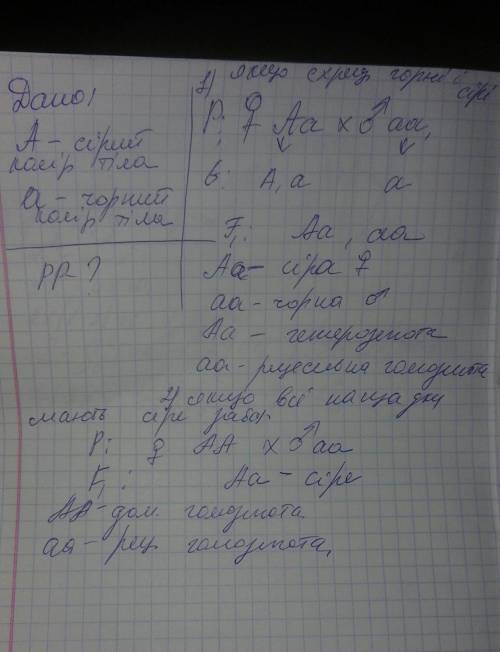 Дано:
А – сірий
колір тіла
а – чорний
колір тіла
РР – ?
1) якщо схрещ чорні і
сірі
Р: ♀ Аа х ♂ аа,
G: А, а а
F₁: Аа, аа
Аа – сіра ♀
аа – чорна ♂
Аа – гетерозигота
аа – рецесивна гомозигота
2) якщо всі нащадки
мають сіре забар
Р: ♀ АА х ♂ аа
F₁: Аа – сіре
АА – дом. гомозигота
аа – рец гомозигота,